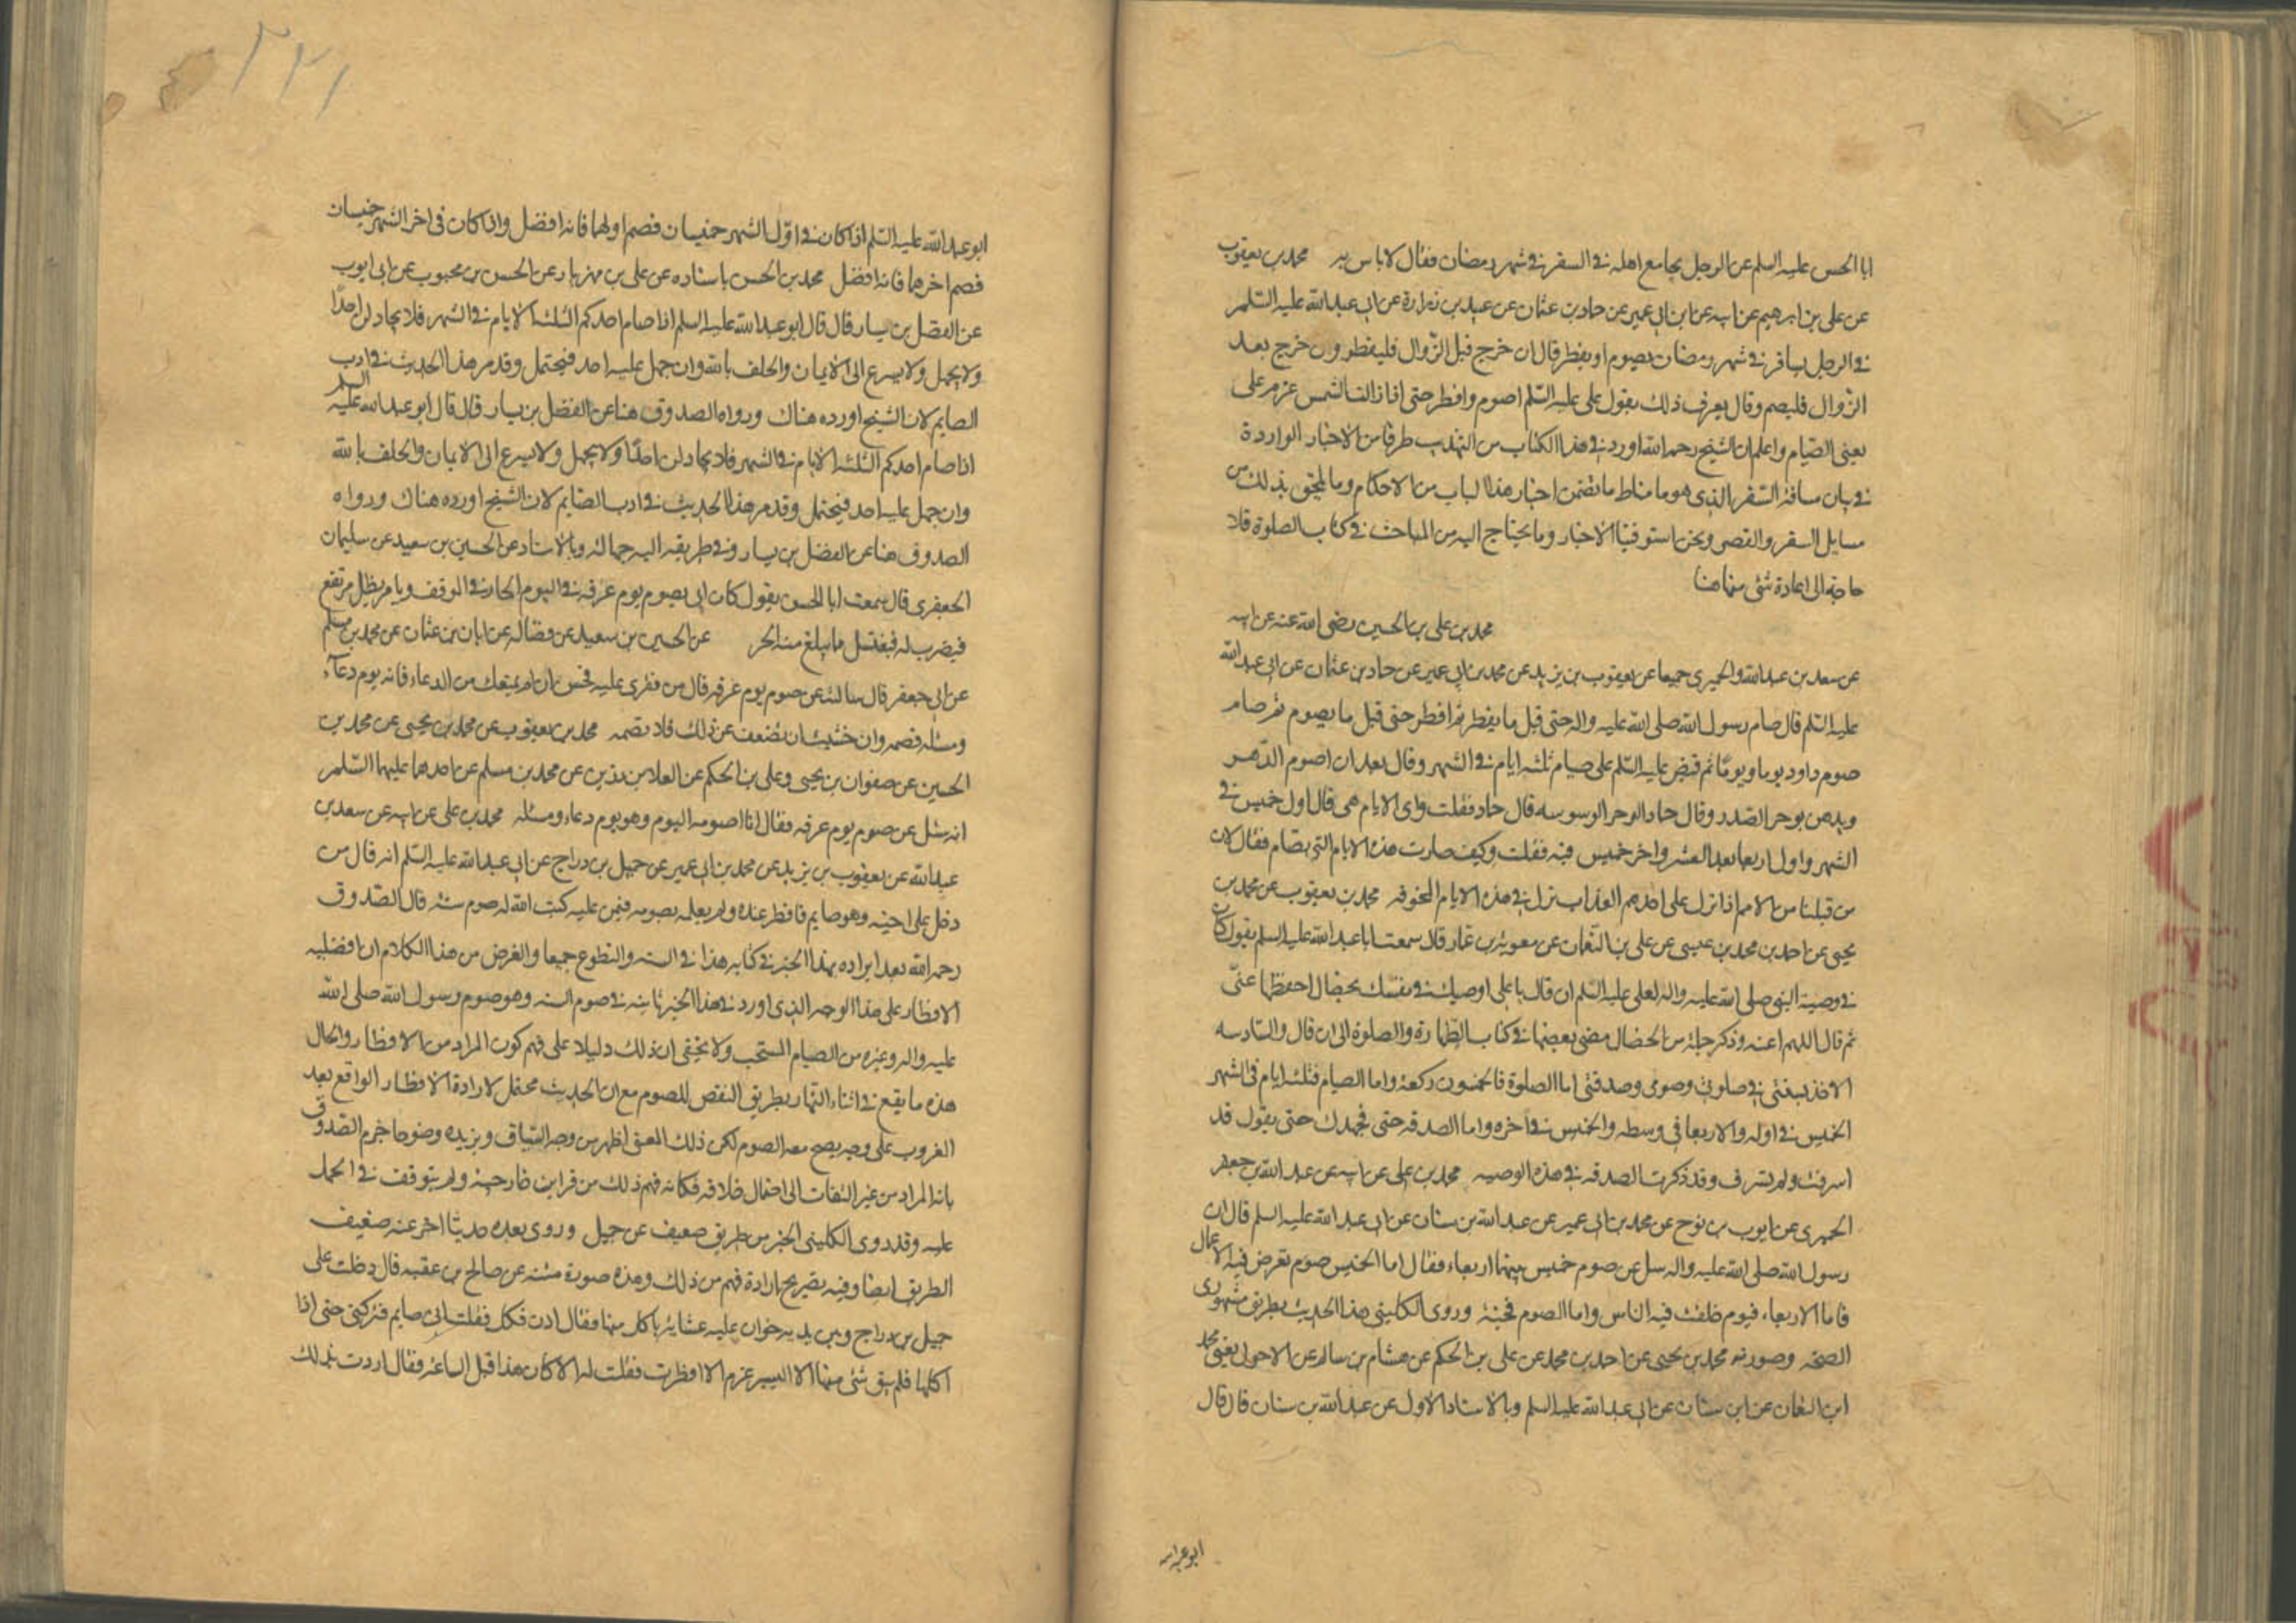 ابا الحسن عليه السلم عن الرجل يجامع اهله في السفر في شهر رمضان فقال لا باس به محمد بن يعقوب
عن علي بن ابرهيم عن ابيه عن ابن ابي عمير عن حماد بن عثمان عن عبيد بن زرارة عن ابي عبد الله عليه السلم
في الرجل يسافر في شهر رمضان يصوم او يفطر قال ان خرج قبل الزوال فليفطر وان خرج بعد
الزوال فليصم وقال يعرف ذلك بقول علي عليه السلم اصوم وافطر حتى اذا زالت الشمس عزم علي
يعني الصيام واعلم ان الشيخ رحمه الله اورد في هذا الكتاب من التهذيب طرفا من الاخبار الواردة
في بيان مسافة السفر الذي هو مناط ما تضمن اخبار هذا الباب من الاحكام وما يلحق بذلك من
مسايل السفر والقصر ونحن استوفينا الاخبار وما يحتاج اليه من المباحث في كتاب الصلوة فلا
حاجة الى اعادة شئ منها هنا
محمد بن علي بن الحسين رضي الله عنه عن ابيه
عن سعد بن عبد الله والحميري جميعا عن يعقوب بن يزيد عن محمد بن ابي عمير عن حماد بن عثمان عن ابي عبد الله
عليه السلم قال صام رسول الله صلى الله عليه واله حتى قيل ما يفطر ثم افطر حتى قيل ما يصوم ثم صام
صوم داود يوما ويوما ثم قبض عليه السلم على صيام ثلثة ايام في الشهر وقال يعدلن صوم الدهر
ويذهبن بوحر الصدر وقال حماد الوحر الوسوسه قال حماد فقلت واي الايام هي قال اول خميس في
الشهر واول اربعا بعد العشر واخر خميس فيه فقلت وكيف صارت هذه الايام التي تصام فقال لان
من قبلنا من الامم اذا نزل على احدهم العذاب نزل في هذه الايام المخوفه محمد بن يعقوب عن محمد بن
يحيى عن احمد بن محمد بن عيسى عن علي بن النعمان عن معوية بن عمار قال سمعت ابا عبد الله عليه السلم يقول كان
في وصية النبي صلى الله عليه واله لعلي عليه السلم ان قال يا علي اوصيك في نفسك بخصال احفظها عني
ثم قال اللهم اعنه وذكر جملة من الخصال مضى بعضها في كتاب الطهارة والصلوة الى ان قال والسادسه
الاخذ بسنتي في صلوتي وصومي وصدقتي اما الصلوة فالخمسون ركعة واما الصيام فثلثة ايام في الشهر
الخميس في اوله والاربعا في وسطه والخميس في اخره واما الصدقه حتى فجهدك حتى يقول قد
اسرفت ولم تسرف وقد ذكرت الصدقه في هذه الوصيه محمد بن علي عن ابيه عن عبد الله بن جعفر
الحميري عن ايوب بن نوح عن محمد بن ابي عمير عن عبد الله بن سنان عن ابي عبد الله عليه السلم قال ان
رسول الله صلى الله عليه واله سئل عن صوم خميس بينهما اربعاء فقال اما الخميس فيوم تعرض فيه الاعمال
فاما الاربعاء فيوم خلقت فيه الناس واما الصوم فجنة وروى الكليني هذا الحديث بطريق مشهوري
الصحة وصورته محمد بن يحيى عن احمد بن محمد عن علي بن الحكم عن هشام بن سالم عن الاحول يعني محمد
ابن النعمان عن ابن سنان عن ابي عبد الله عليه السلم وبالاسناد الاول عن عبد الله بن سنان قال قال
ابو عبد الله
٢٢١
ابو عبد الله عليه السلم اذا كان في اول الشهر خميسان فصم اولهما فانه افضل واذا كان في اخر الشهر خميسان
فصم اخرهما فانه افضل محمد بن الحسن باسناده عن علي بن مهزيار عن الحسن بن محبوب عن ابي ايوب
عن الفضل بن يسار قال قال ابو عبد الله عليه السلم اذا صام احدكم الثلثة الايام في الشهر فلا يجادلن احدا
ولا يجهل ولا يسرع الى الايمان والحلف بالله وان جهل عليه احد فيحتمل وقد مر هذا الحديث في ادب
الصايم لان الشيخ اورده هناك ورواه الصدوق هنا عن الفضل بن يسار قال قال ابو عبد الله عليه السلم
اذا صام احدكم الثلثة الايام في الشهر فلا يجادلن احدا ولا يجهل ولا يسرع الى الايمان والحلف بالله
وان جهل عليه احد فيحتمل وقد مر هذا الحديث في ادب الصايم لان الشيخ اورده هناك ورواه
الصدوق هنا عن الفضل بن يسار وفي طريقه اليه جهالة وبالاسناد عن الحسين بن سعيد عن سليمان
الجعفري قال سمعت ابا الحسن يقول كان ابي يصوم يوم عرفه في اليوم الحار في الموقف ويامر بظل مرتفع
فيضرب له فيغتسل مما يبلغ منه الحر عن الحسين بن سعيد عن فضاله عن ابان بن عثمان عن محمد بن مسلم
عن ابي جعفر قال سالته عن صوم يوم عرفه قال من قوي عليه فحسن ان لم يمنعك من الدعاء فانه يوم دعاء
ومسئلة فصمه وان خشيت ان تضعف عن ذلك فلا تصمه محمد بن يعقوب عن محمد بن يحيى عن محمد بن
الحسين عن صفوان بن يحيى وعلي بن الحكم عن العلا بن رزين عن محمد بن مسلم عن احدهما عليهما السلم
انه سئل عن صوم يوم عرفه فقال انا اصومه اليوم وهو يوم دعاء ومسئله محمد بن علي عن ابيه عن سعد بن
عبد الله عن يعقوب بن يزيد عن محمد بن ابي عمير عن جميل بن دراج عن ابي عبد الله عليه السلم انه قال من
دخل على اخيه وهو صايم فافطر عنده ولم يعلمه بصومه فيمن عليه كتب الله له صوم سنة قال الصدوق
رحمه الله بعد ايراده بهذا الخبر في كتابه هذا في السنه والتطوع جميعا والغرض من هذا الكلام ان افضليه
الافطار على هذا الوجه الذي اورد في هذا الخبر ثابته في صوم السنه وهو صوم رسول الله صلى الله
عليه واله وغيره من الصيام المستحب ولا يخفى ان ذلك دليلا على فهم كون المراد من الافطار والحال
هذه ما يقع في اثناء النهار بطريق النقص للصوم مع ان الحديث محتمل لارادة الافطار الواقع بعد
الغروب على وجه يصح معه الصوم لكن ذلك المعنى اظهر من وجه السياق ويزيده وضوحا جزم الصدوق
بانه المراد من غير التفات الى احتمال خلافه فكانه فهم ذلك من قراين خارجية ولم يتوقف في الحمل
عليه وقد روى الكليني الخبر من طريق ضعيف عن جميل وروى بعده حديثا اخر عنه ضعيف
الطريق ايضا وفيه تصريح بارادة فهم من ذلك وهذه صورة متنه عن صالح بن عقبه قال دخلت على
جميل بن دراج وبين يديه خوان عليه غشانة ياكل منها فقال ادن فكل فقلت اني صايم فتركني حتى اذا
اكلها فلم يبق شئ منها الا اليسير عزم الا افطرت فقلت له الا كان هذا قبل الساعة فقال اردت بذلك